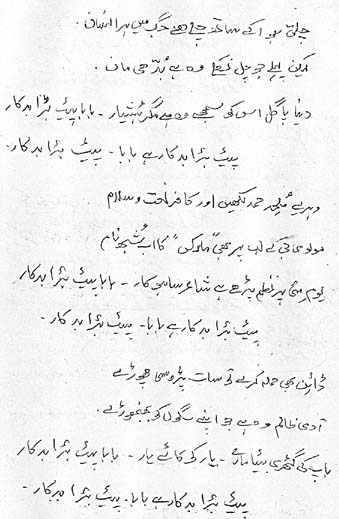 چلتی ہوا کے ساتھ چلے ھے جگ میں ہر انسان۔
لیکن پہلے جو چل نکلے وہ ہے بُدّھی مان۔
دنیا پاگل اس کو سمجھے وہ ہے مگر ہُشیار۔ بابا پیٹ بڑا بدکار
پیٹ بڑا بدکار ہے بابا۔ پیٹ بڑا بدکار۔
دہریے مُلحد حمد لکھیں اور کافر نعت و سلام
مولوی جی کے لب پر بھی "مارکس" کا اب شُبھ نام
یوم مئی پر نظم پڑھے ہے شاعر ساہوکار۔ بابا پیٹ بڑا بدکار
پیٹ بڑا بدکار ہے بابا۔ پیٹ بڑا بدکار۔
ڈائن بھی حملہ کرے تو سات پڑوسی چھوڑے
آدمی ظالم وہ ہے جو اپنے سگوں کو بھنبھوڑے۔
باپ کی گٹھری بیٹا مارے۔ یار کی کاٹے یار۔ بابا پیٹ بڑا بدکار
پیٹ بڑا بدکار ہے بابا۔ پیٹ بڑا بدکار۔